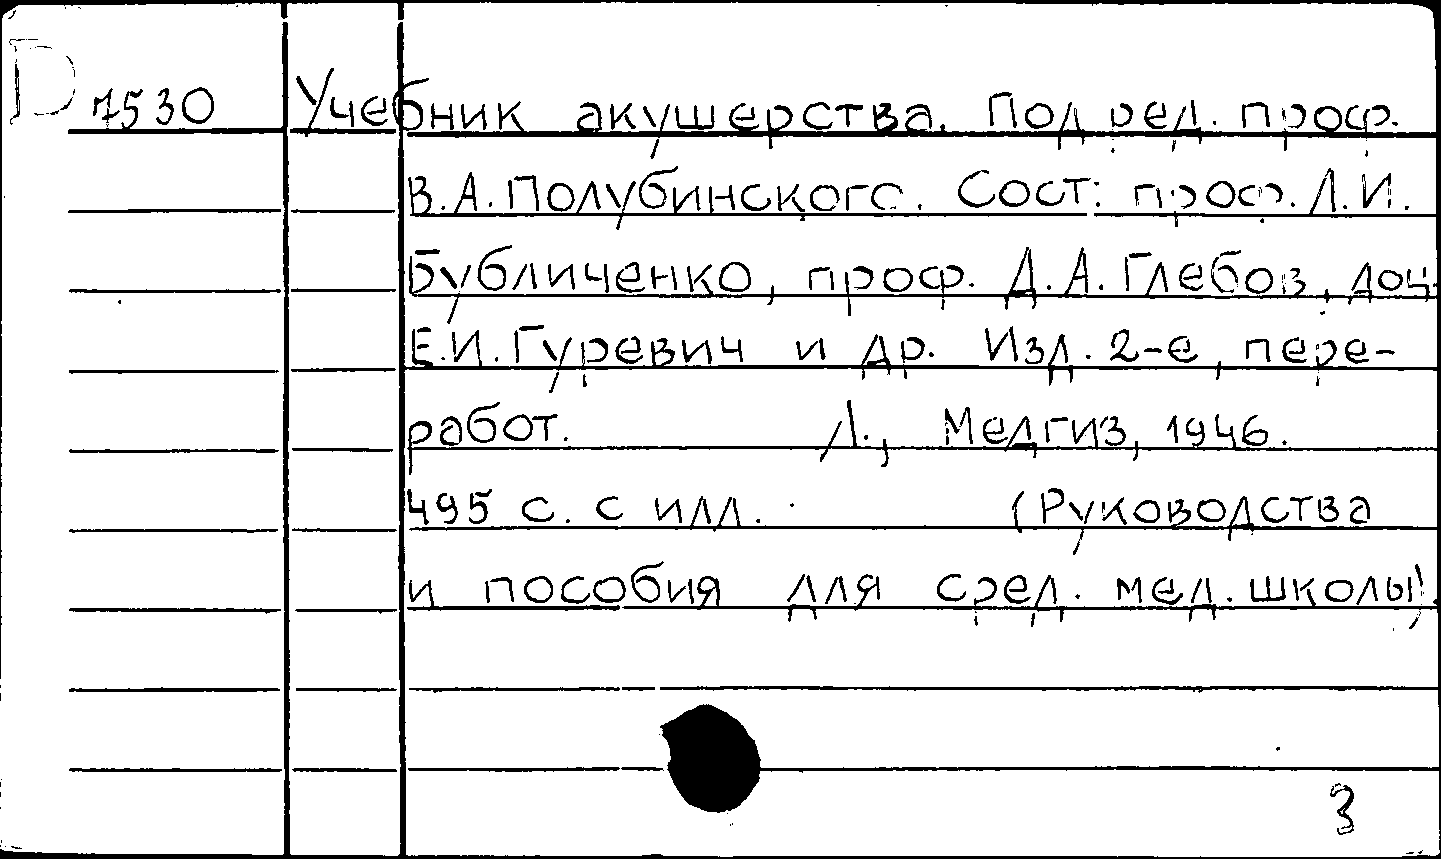 D 7530 Учебник акушерства. Под ред. проф.
В.А.Полубинского. Сост: проф. Л.И.
Бубличенко, проф. Д.А.Глебов, доц.
Е.И.Гуревич и др. Изд. 2-е, пере-
работ. Л., Медгиз, 1946.
495 с. с илл. (Руководства
и пособия для сред. мед. школы).
3